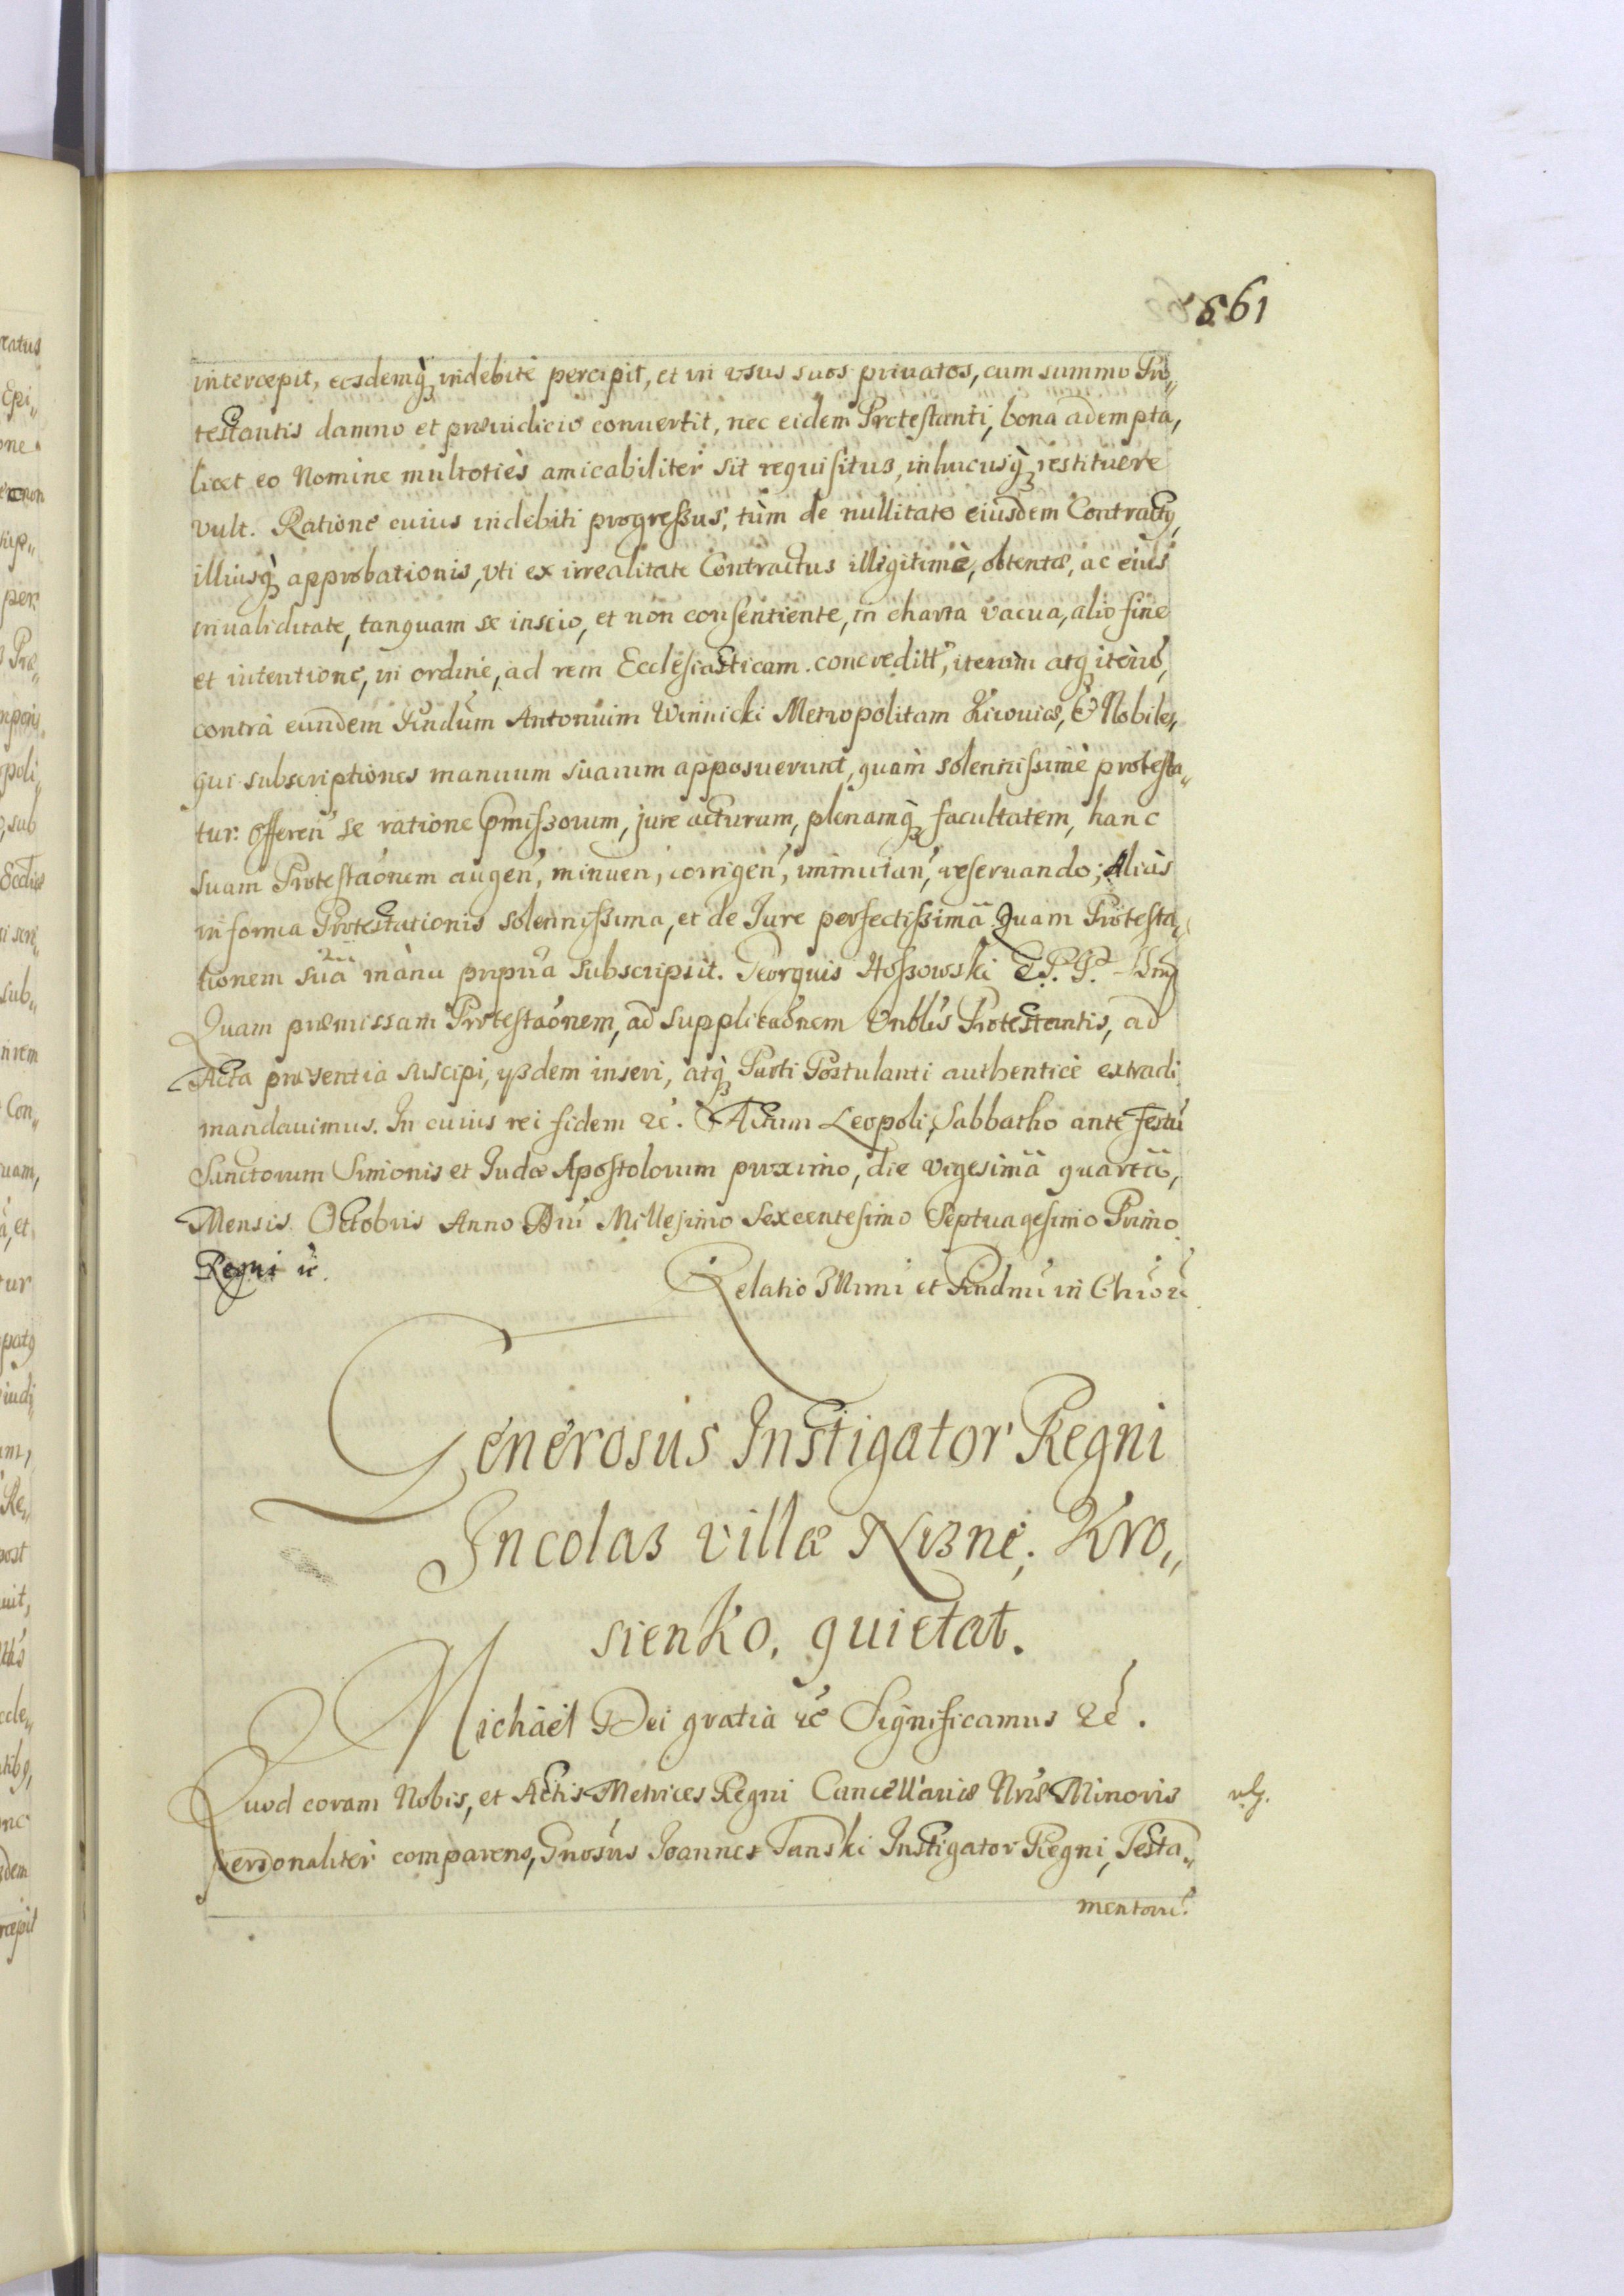 561
intercepit, eosdemq́ indebitè percipit, et in vsus suos priuatos, cum summo Pro„
testantis damno et præiudicio conuertit, nec eidem Protestanti, bona adempta,
licet eo Nomine multotiès amicabiliter sit requisitus, inhucusq́ restituere
vult. Ratione cuius indebiti progressus, tùm de nullitate eiusdem Contractus,
illiusq́ approbationis, vti ex irrealitate Contractus illegitimè, obtentæ, ac eius
inualiditate, tanquam se inscio, et non consentiente, in charta vacua, alio fine
et intentione, in ordine, ad rem Ecclesiasticam concreditt, iterùm atq iterùm,
contrà eundem Rndum Antonium Winnicki Metropolitam Kiiouiæ, & Nobiles,
qui subscriptiones manuum suarum apposuerunt, quàm solennissimè protesta„
tur. Offeren se ratione pmissorum, jure acturum, plenamq́ facultatem, hanc
suam Protestaonem augen, minuen, corrigen, immutan, reseruando; Aliàs
in forma Protestationis solennissima, et de Iure perfectissimâ Quam Protesta„
tionem suâ manu propria subscripsit. Georgius Hoszowski E. P. P.
Quam præmissam Protestaonem, ad supplicaonem Vnblis Protestantis, ad
Acta præsentia suscipi, ysdem inseri, atq́ Parti Postulanti authenticè extradi
mandauimus. In cuius rei fidem &c. Actum Leopoli, Sabbatho ante Festu
Sanctorum Simonis et Iudæ Apostolorum proximo, die vigesimâ quartâ,
Mensis Octobris Anno Dni Millesimo Sexcentesimo Septuagesimo Primo
Regni &c.
Relatio Illmi et Rndmi in Chro &c
Generosus Instigator Regni
Incolas villæ Nizne, Kro„
sienko, quietat.
Michaël Dei gratia &c Significamus &c.
Quod coram Nobis, et Actis Metrices Regni Cancellariæ Nræ Minoris
personaliter comparens, Gnosus Ioannes Tanski Instigator Regni, Testa„
mentoru